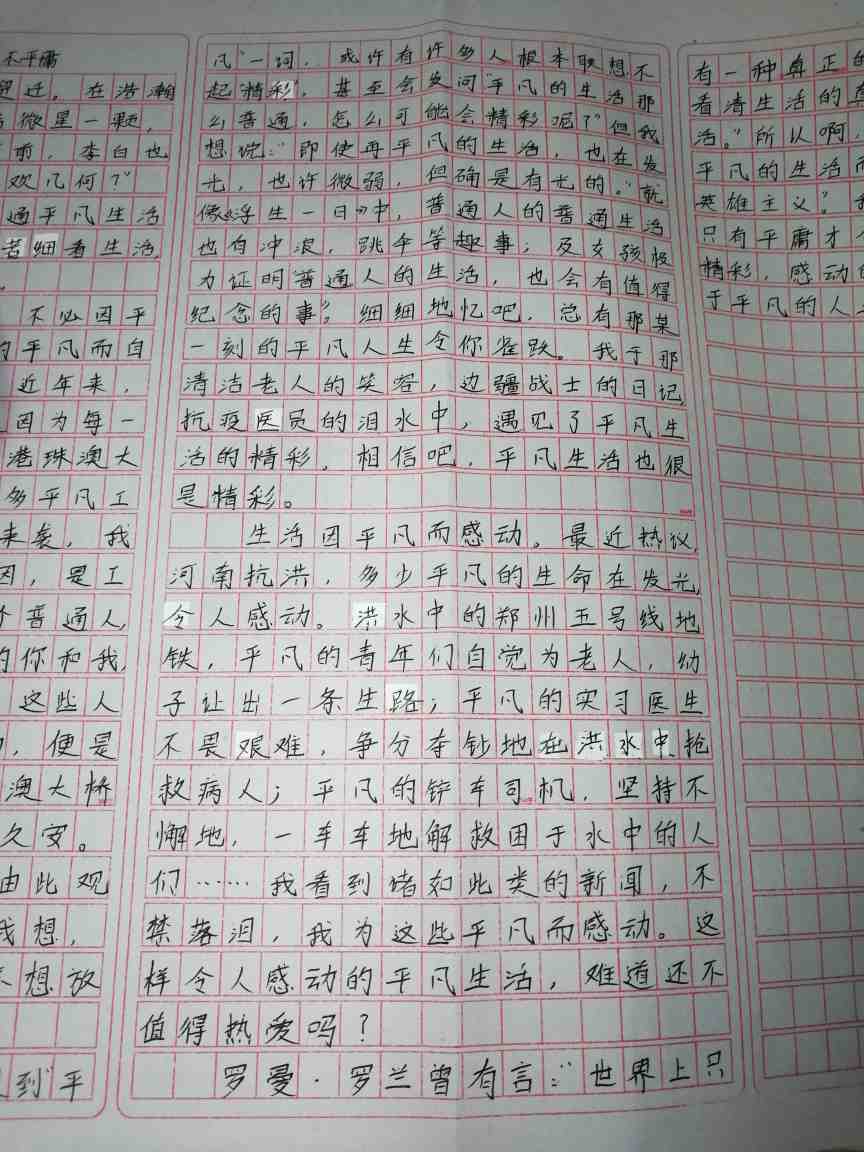 不平庸
迁，在浩瀚
微星一颗，
前，李白也
欢几何？”
通平凡生活
若细看生活，
。
不必因平
的平凡而自
近年来，
因为每一
港珠澳大
多平凡工
来袭，我
因，是工
个普通人，
的你和我，
这些人
，便是
澳大桥
久安。
由此观
我想，
不想放
到“平
凡”一词，或许有许多人根本联想不
起“精彩”，甚至会发问“平凡的生活那
么普通，怎么可能会精彩呢？”但我
想说：“即使再平凡的生活，也在发
光，也许微弱，但确是有光的。”就
像《浮生一日》中，普通人的普通生活
也有冲浪，跳伞等趣事；及女孩极
力证明“普通人的生活，也会有值得
纪念的事”。细细地忆吧，总有那某
一刻的平凡人生令你雀跃。我于那
清洁老人的笑容，边疆战士的日记
抗疫医员的泪水中，遇见了平凡生
活的精彩，相信吧，平凡生活也很
是精彩。
生活因平凡而感动。最近热议，
河南抗洪，多少平凡的生命在发光，
令人感动。洪水中的郑州五号线地
铁，平凡的青年们自觉为老人，幼
子让出一条生路；平凡的实习医生
不畏艰难，争分夺钞地在洪水中抢
救病人；平凡的铲车司机，坚持不
懈地，一车车地解救困于水中的人
们……我看到诸如此类的新闻，不
禁落泪，我为这些平凡而感动。这
样令人感动的平凡生活，难道还不
值得热爱吗？
罗曼·罗兰曾有言：“世界上只
有一种真正的
看清生活的
活。”所以啊，
平凡的生活而
英雄主义？
只有平庸才
精彩，感动
于平凡的人